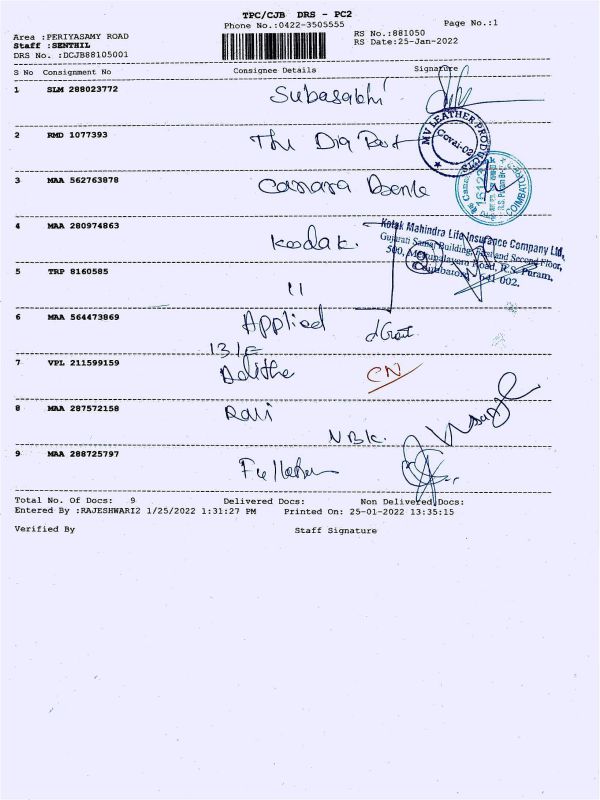 TPC/CJB DRS - PC2
Phone No.:0422-3505555
Page No.:1
Area :PERIYASAMY ROAD
RS No.:881050
Staff :SENTHIL
RS Date:25-Jan-2022
DRS No. :DCJB88105001
S No Consignment No Consignee Details Signature
1 SLM 288023772 Subasabhi
MV LEATHER PRODUCTS
Covai-02
2 RMD 1077393 The Dig
3 MAA 562763878 Canara
COIMBATORE
4 MAA 280974863 Kodak.
Kotak Mahindra Life Insurance Company Ltd,
Gujarati Samaj Building, First and Second Floor,
500, Mettupalayam Road, R.S. Puram,
Coimbatore - 641 002.
5 TRP 8160585 "
6 MAA 564473869 Applied
131F
7 VPL 211599159 CN
8 MAA 287572158 Ravi
9 MAA 288725797
Total No. Of Docs: 9 Delivered Docs: Non Delivered Docs:
Entered By :RAJESHWARI2 1/25/2022 1:31:27 PM Printed On: 25-01-2022 13:35:15
Verified By Staff Signature